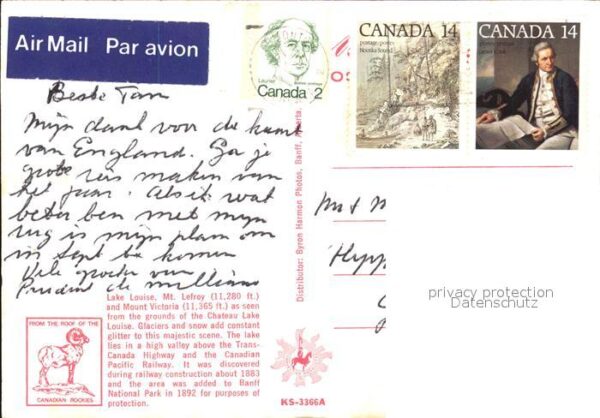 Air Mail Par avion
Laurier
postage postes
Canada 2
CANADA 14
postage-postes
Nootka Sound
CANADA 14
Beste Tom
Mijn dank voor de kaart
van England. Ga je
grote reis maken van
het jaar. Als ik wat
beter ben met mijn
rug is mijn plan om
in Sept te komen
Vele groeten van
de
Mr &
Lake Louise, Mt. Lefroy (11,280 ft.)
and Mount Victoria (11,365 ft.) as seen
from the grounds of the Chateau Lake
Louise. Glaciers and snow add constant
glitter to this majestic scene. The lake
lies in a high valley above the Trans-
Canada Highway and the Canadian
Pacific Railway. It was discovered
during railway construction about 1883
and the area was added to Banff
National Park in 1892 for purposes of
protection.
FROM THE ROOF OF THE
CANADIAN ROCKIES
Distributor: Byron Harmon Photos, Banff, Alberta.
KS-3366A
privacy protection
Datenschutz